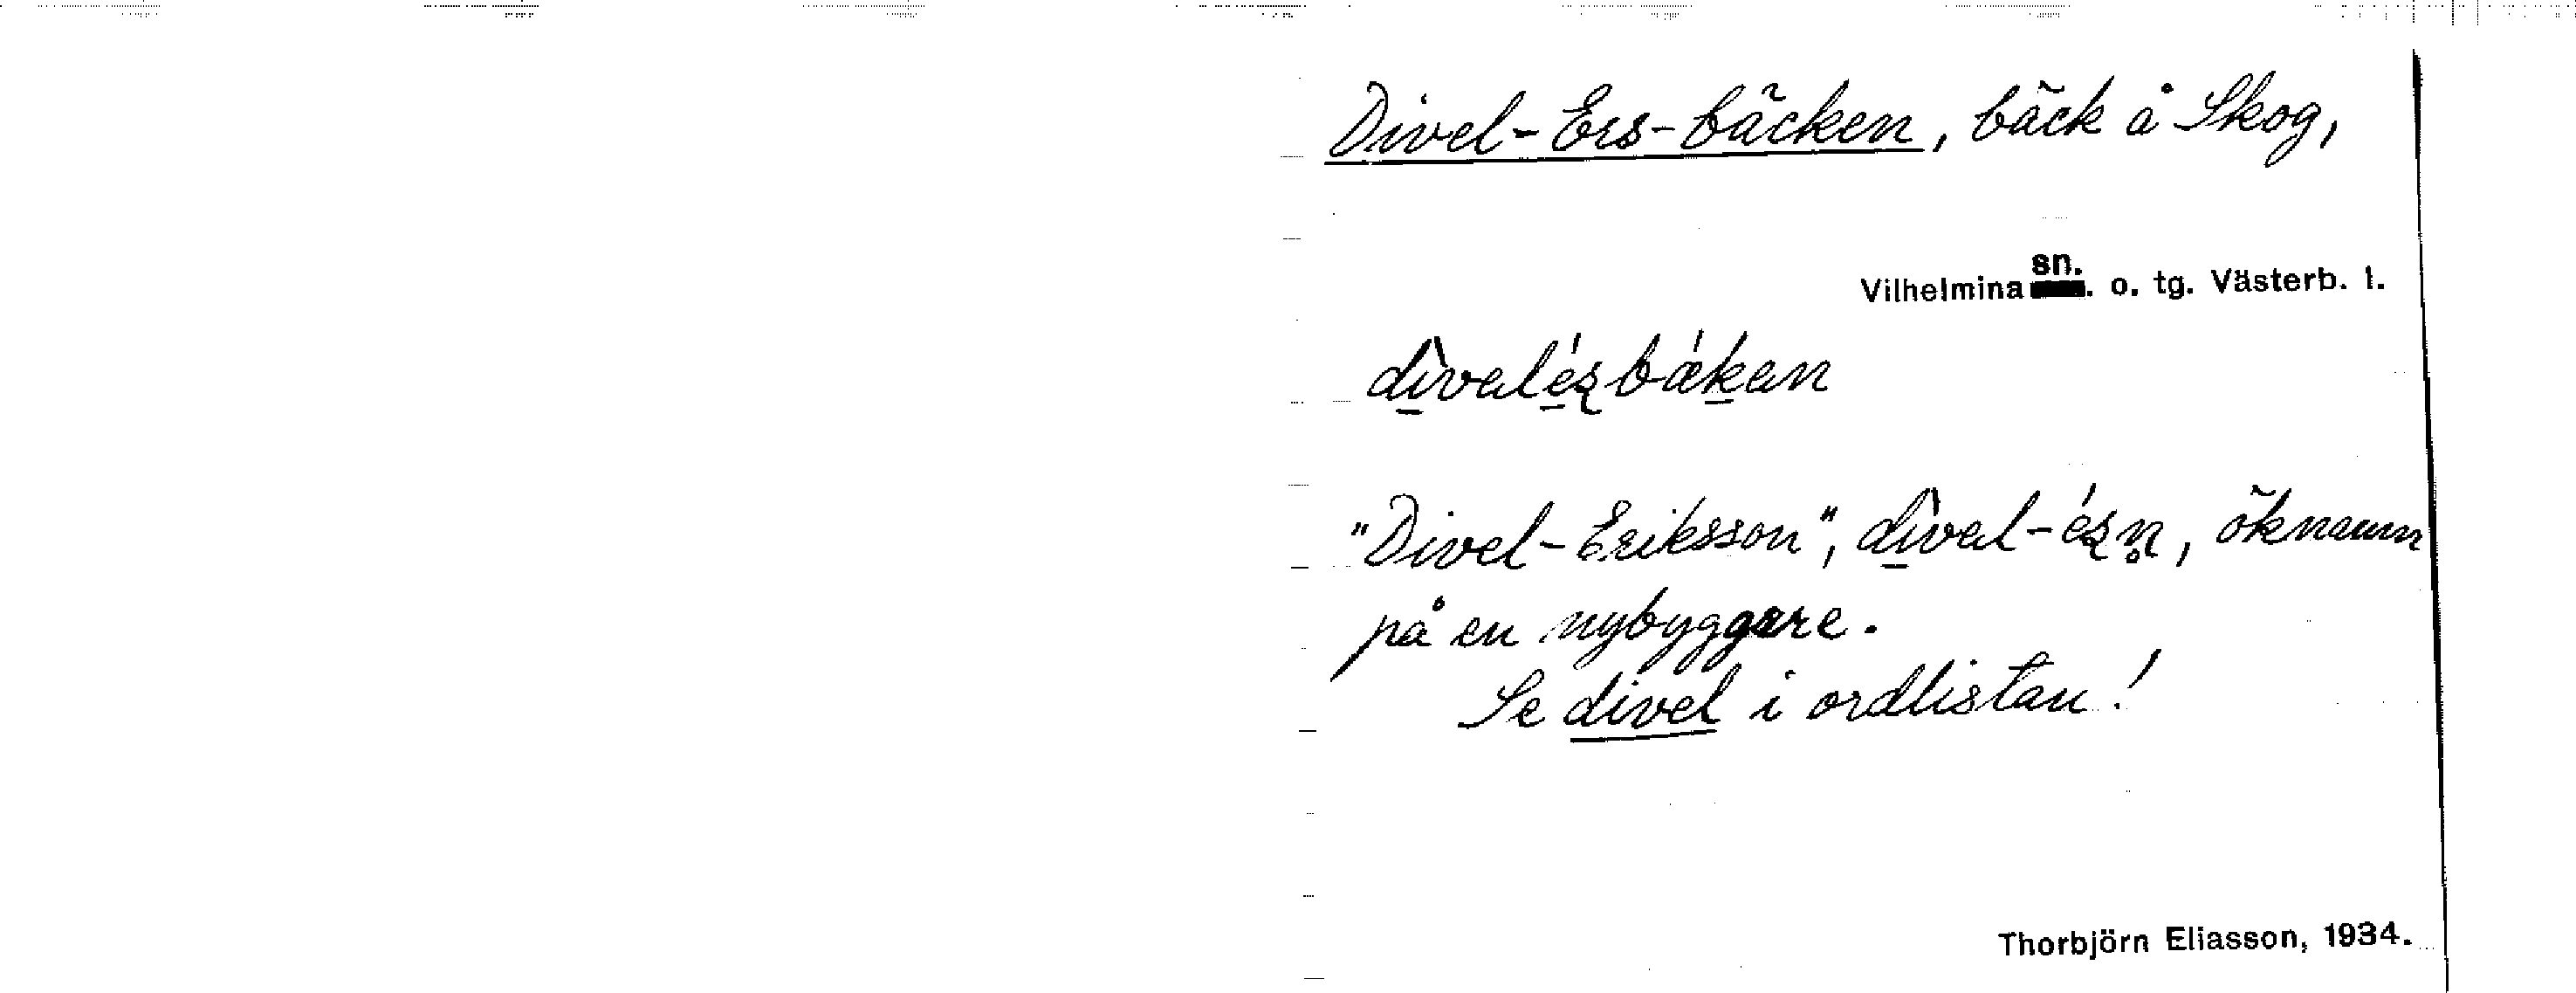 Divel-Ers-bäcken, bäck å Skog,
Vilhelmina sn. o. tg. Västerb. l.
"Divel-Eriksson", öknamn
på en nybyggare.
Se divel i ordlistan!
Thorbjörn Eliasson, 1934.